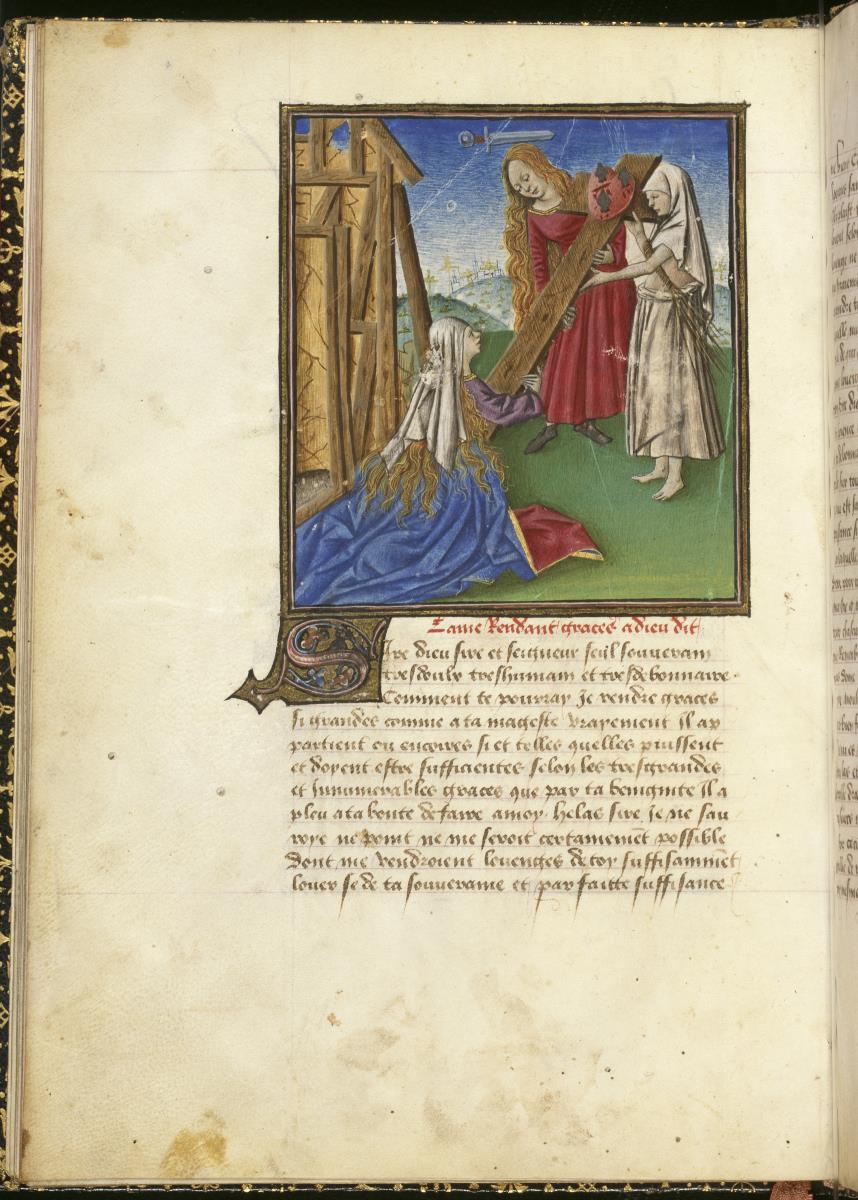 Lame Rendant graces a dieu dit
Sire dieu sire et seigneur seul souverain
tresdoulx treshumain et tresdebonnaire.
Comment te pourray Je rendre graces
si grandes comme a ta mageste vrayement Il ap
partient ou encores si et telles quelles puissent
et doyent estre suffisientes selon les tresgrandes
et Innumerables graces que par ta benignite Il a
pleu a ta bonte de faire a moy. helas sire Je ne sau
roye ne point ne me seroit certainemēt possible
Dont me vendroient louenges de toy suffisammēt
louer se de ta souveraine et parfaitte suffisance